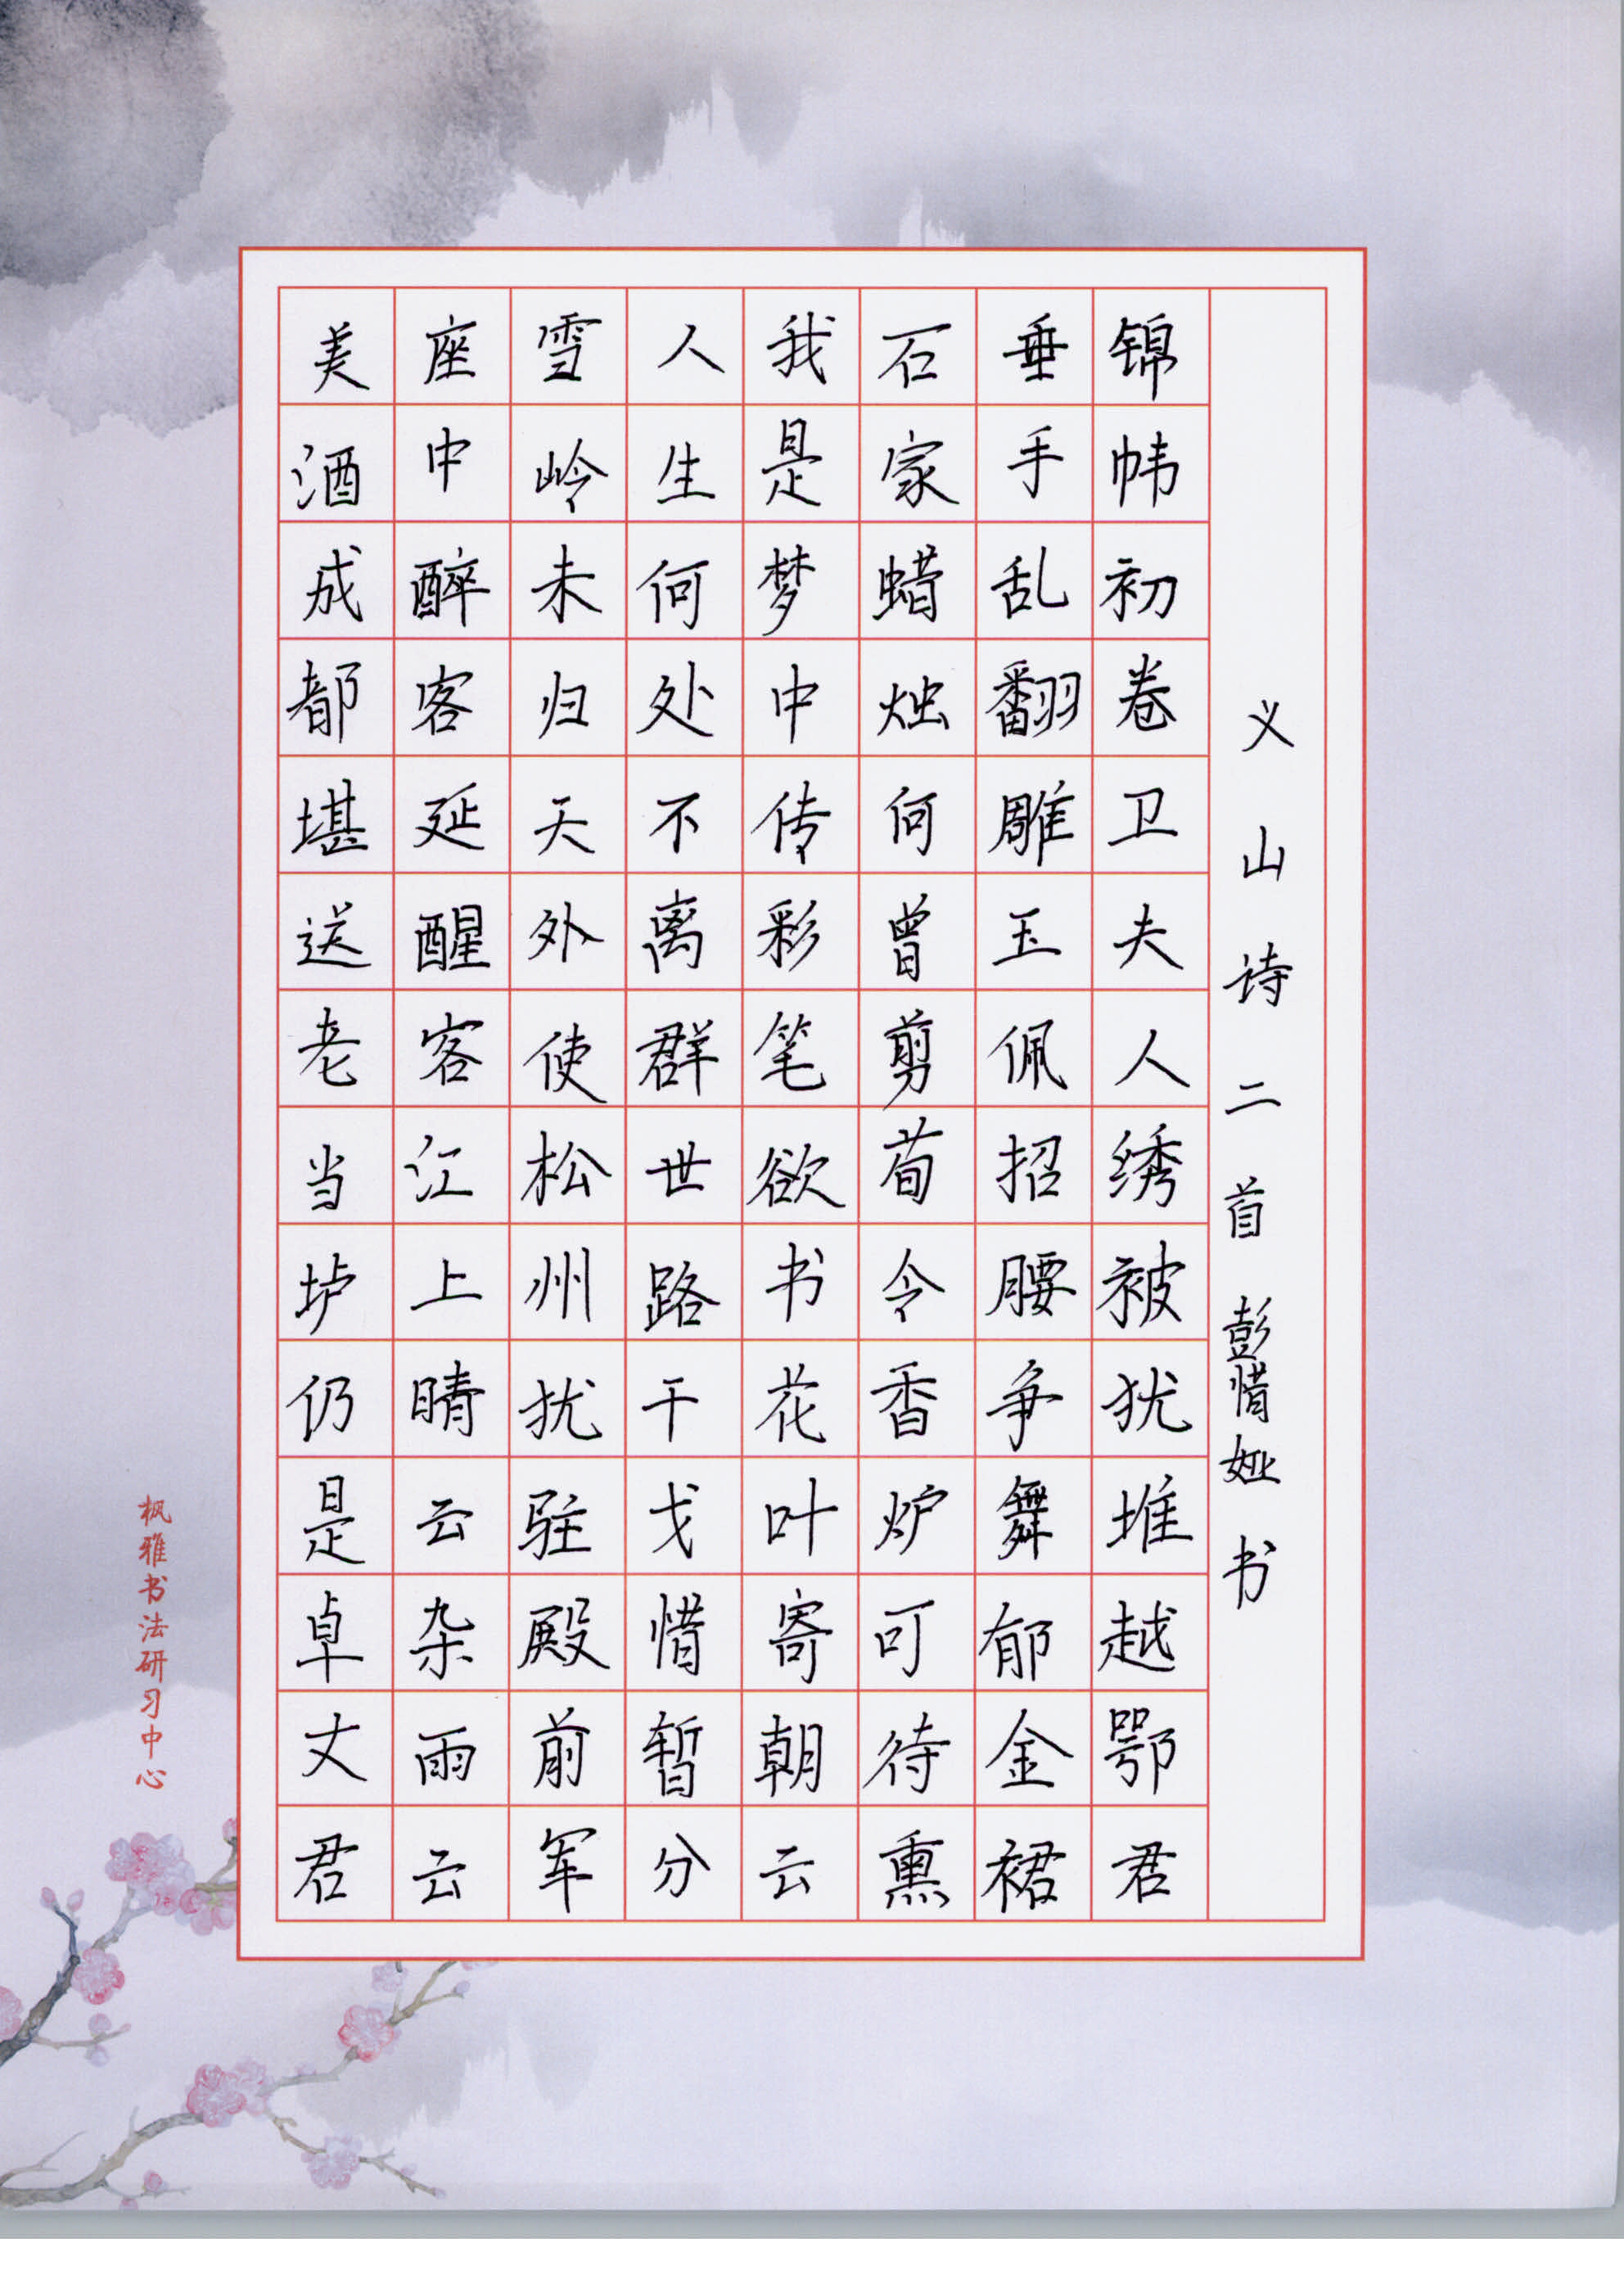 义山诗二首 彭惜娅 书
锦帏初卷卫夫人绣被犹堆越鄂君
垂手乱翻雕玉佩招腰争舞郁金裙
石家蜡烛何曾剪荀令香炉可待熏
我是梦中传彩笔欲书花叶寄朝云
人生何处不离群世路干戈惜暂分
雪岭未归天外使松州犹驻殿前军
座中醉客延醒客江上晴云杂雨云
美酒成都堪送老当垆仍是卓文君
枫雅书法研习中心